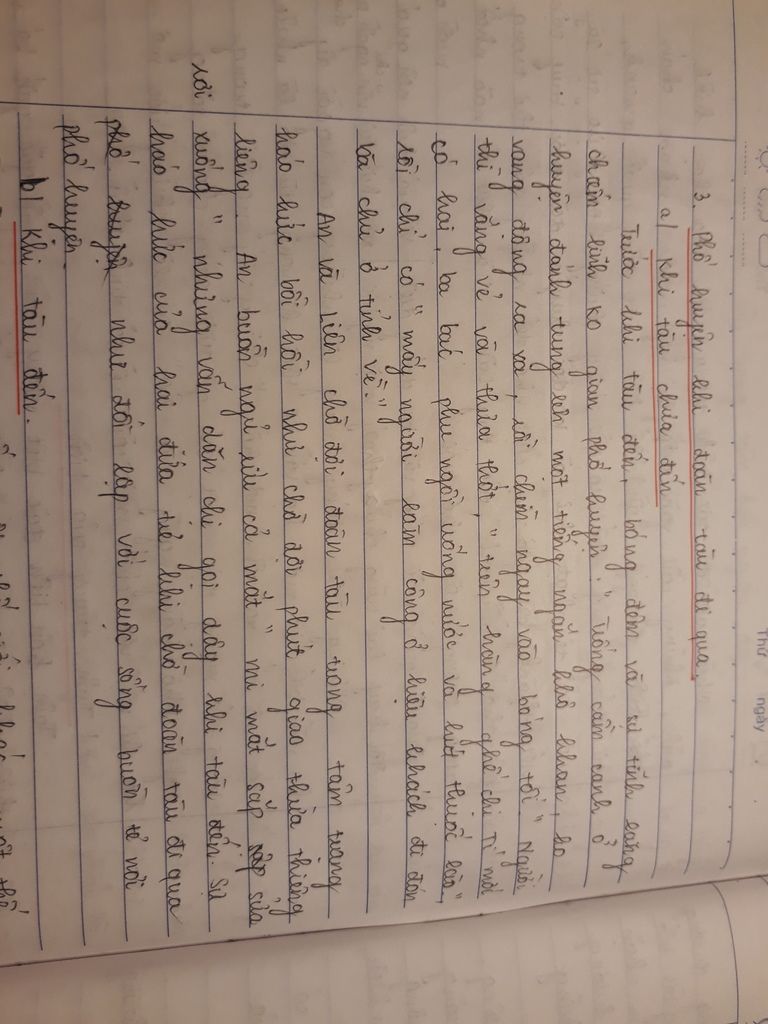 Thứ
ngày
3. Phố huyện khi đoàn tàu đi qua.
a/ Khi tàu chưa đến
Trước khi tàu đến, bóng đêm và sự tĩnh lặng
chiếm lĩnh ko gian phố huyện: "Trống cầm canh ở
huyện đánh tung lên một tiếng ngắn khô khan, ko
vang động ra xa, rồi chìm ngay vào bóng tối". Người
thì vắng vẻ và thưa thớt, "trên hàng ghế chị Tí mới
có hai, ba bác phu ngồi uống nước và hút thuốc lào",
rồi chỉ có "mấy người làm công ở hiệu khách đi đón
bà chủ ở tỉnh về."
An và Liên chờ đợi đoàn tàu trong tâm trạng
háo hức bồi hồi như chờ đợi phút giao thừa thiêng
liêng. An buồn ngủ ríu cả mắt "mi mắt sắp sửa
rơi xuống" nhưng vẫn dặn chị gọi dậy khi tàu đến. Sự
háo hức của hai đứa trẻ khi chờ đoàn tàu đi qua
phố huyện như đối lập với cuộc sống buồn tẻ nơi
phố huyện.
b/ Khi tàu đến.